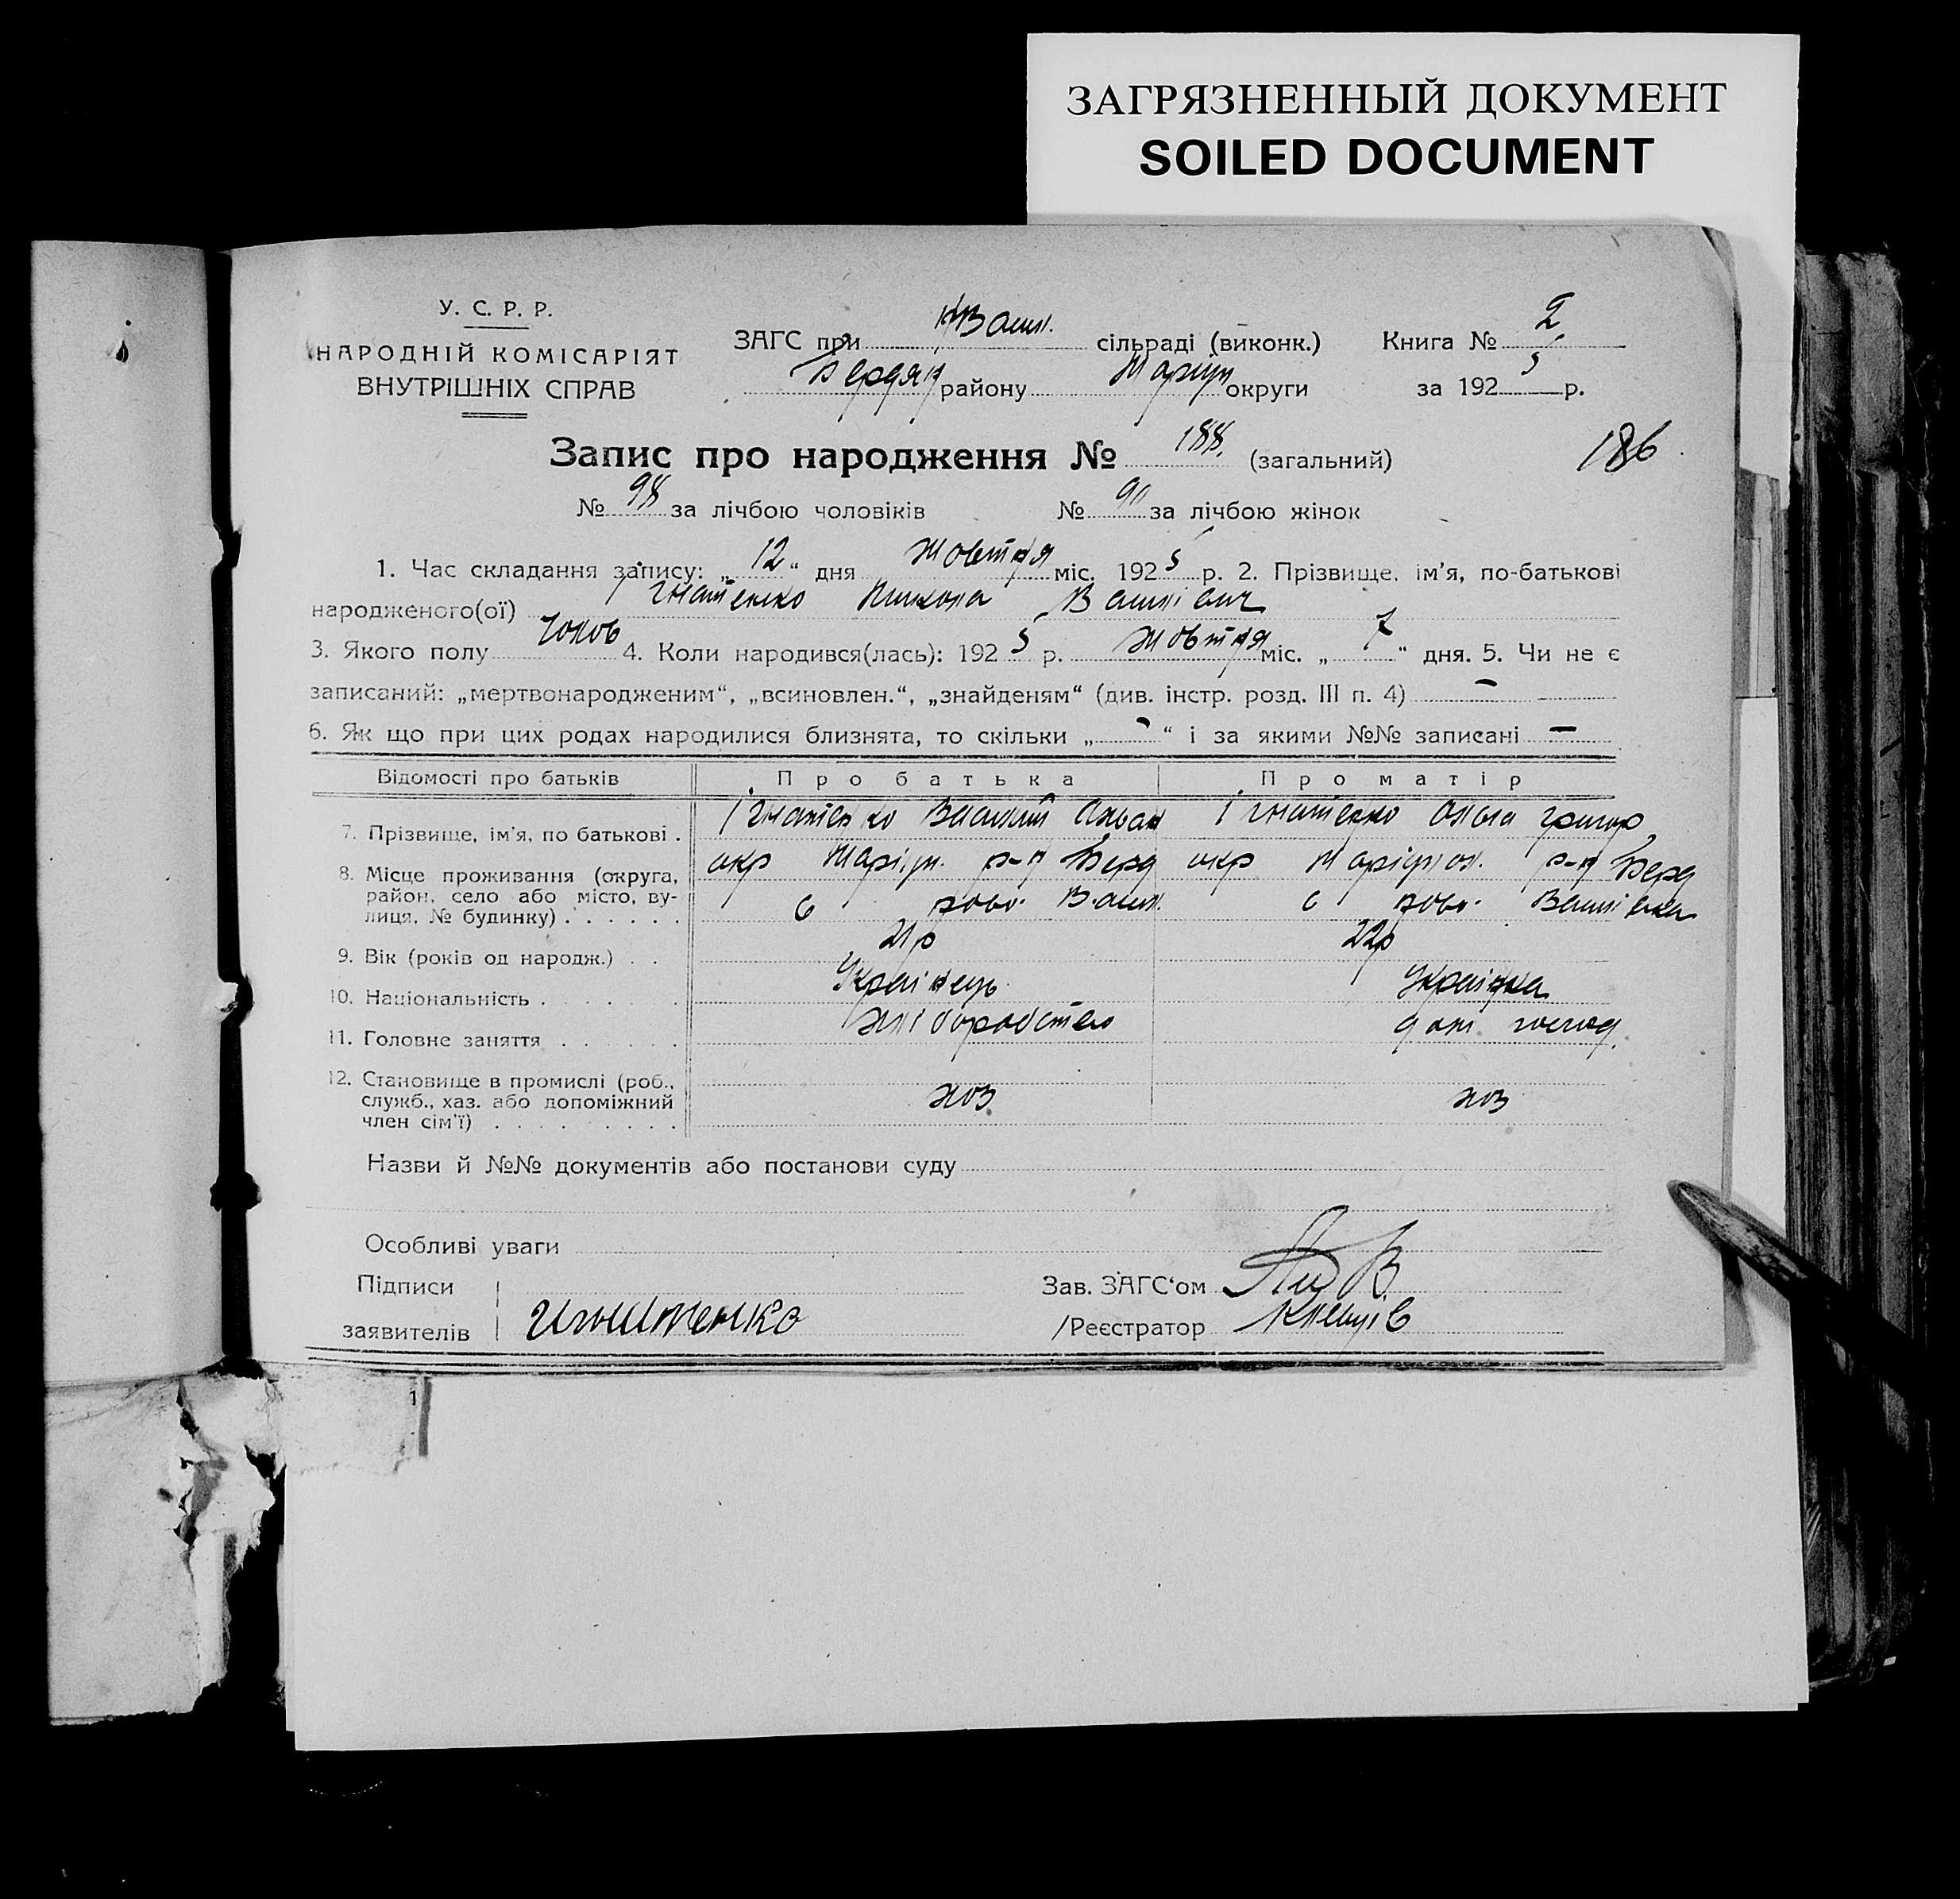 ЗАГРЯЗНЕННЫЙ ДОКУМЕНТ
SOILED DOCUMENT
У. С. Р. Р.
НАРОДНІЙ КОМІСАРІЯТ
ВНУТРІШНІХ СПРАВ
ЗАГС при сільраді (виконк.) Книга № 2
Бердян району Маріуп округи за 1925 р.
Запис про народження № 188. (загальний) 186
№ 98 за лічбою чоловіків № 90 за лічбою жінок
1. Час складання запису: „12“ дня Жовтня міс. 1925 р. 2. Прізвище, ім'я, по-батькові
народженого(ої) Ігнатенко Микола Василієвич
3. Якого полу чолов 4. Коли народився(лась): 1925 р. Жовтня міс. „7“ дня. 5. Чи не є
записаний: „мертвонародженим“, „всиновлен.“, „знайденям“ (див. інстр. розд. III п. 4) –
6. Як що при цих родах народилися близнята, то скільки „-“ і за якими №№ записані –
Відомості про батьків Про батька Про матір
7. Прізвище, ім'я, по батькові . Ігнатенко Василий Ігнатенко Ольга Григор
8. Місце проживання (округа, окр Маріуп. р-н Берд окр Маріупол. р-н Берд
район, село або місто, ву- с Ново. Васил. с Ново. Василівка
лиця, № будинку) . . . . . .
9. Вік (років од народж.) . . 21 р 22 р
10. Національність . . . . . . . Українець Українка
11. Головне заняття . . . . . . хліборобство дом господ.
12. Становище в промислі (роб.,
служб., хаз. або допоміжний хоз хоз
член сім'ї) . . . . . . . . .
Назви й №№ документів або постанови суду
Особливі уваги
Підписи Зав. ЗАГС'ом
заявителів Игнатенко /Реєстратор
1